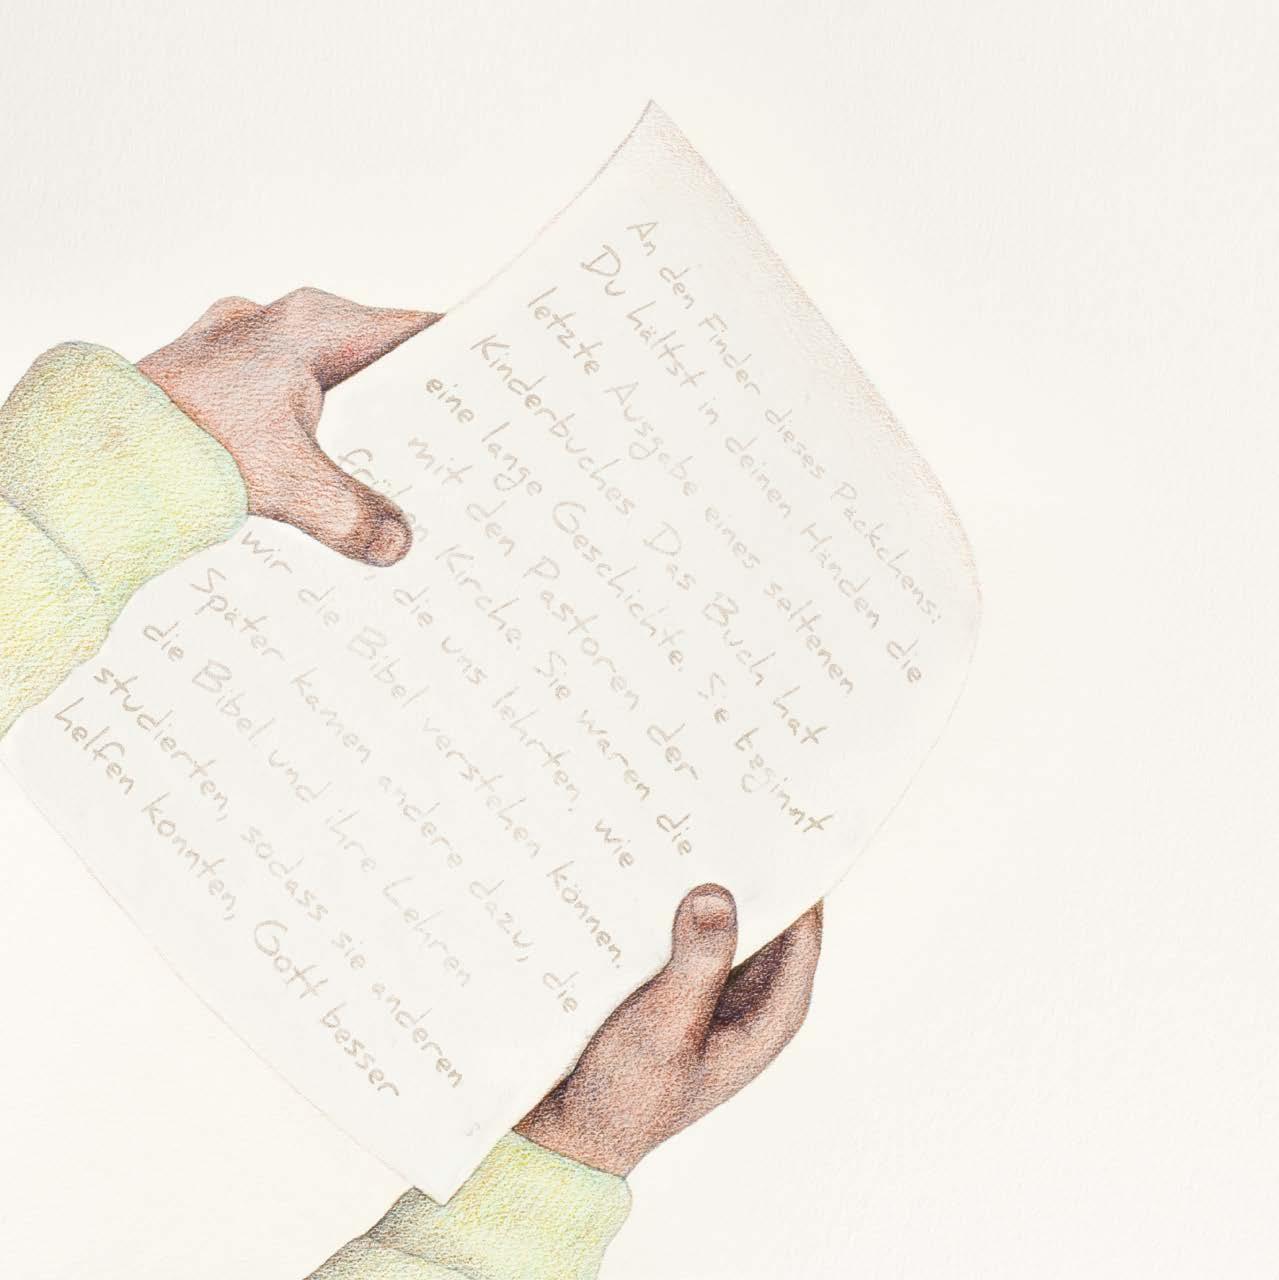 An den Finder dieses Päckchens:
Du hältst in deinen Händen die
letzte Ausgabe eines seltenen
Kinderbuches Das Buch hat
eine lange Geschichte. Sie beginnt
mit den Pastoren der
frühen Kirche. Sie waren die
, die uns lehrten, wie
wir die Bibel verstehen können.
Später kamen andere dazu, die
die Bibel und ihre Lehren
studierten, sodass sie anderen
helfen konnten, Gott besser